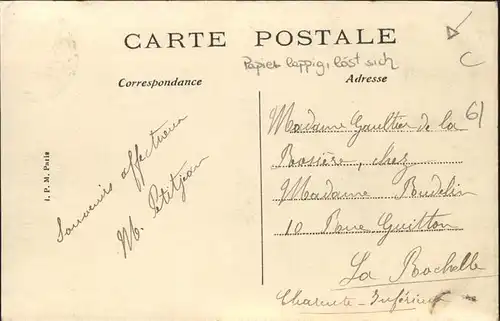 CARTE POSTALE
Papier lappig, löst sich
Correspondance
Adresse
C
61
Souvenirs affectueux
M. Petitjean
Madame Gaultier de la
Boosière, chez
Madame Boudelin
10 Rue Guitton
La Rochelle
Charente-Inférieure
I. P. M. Paris